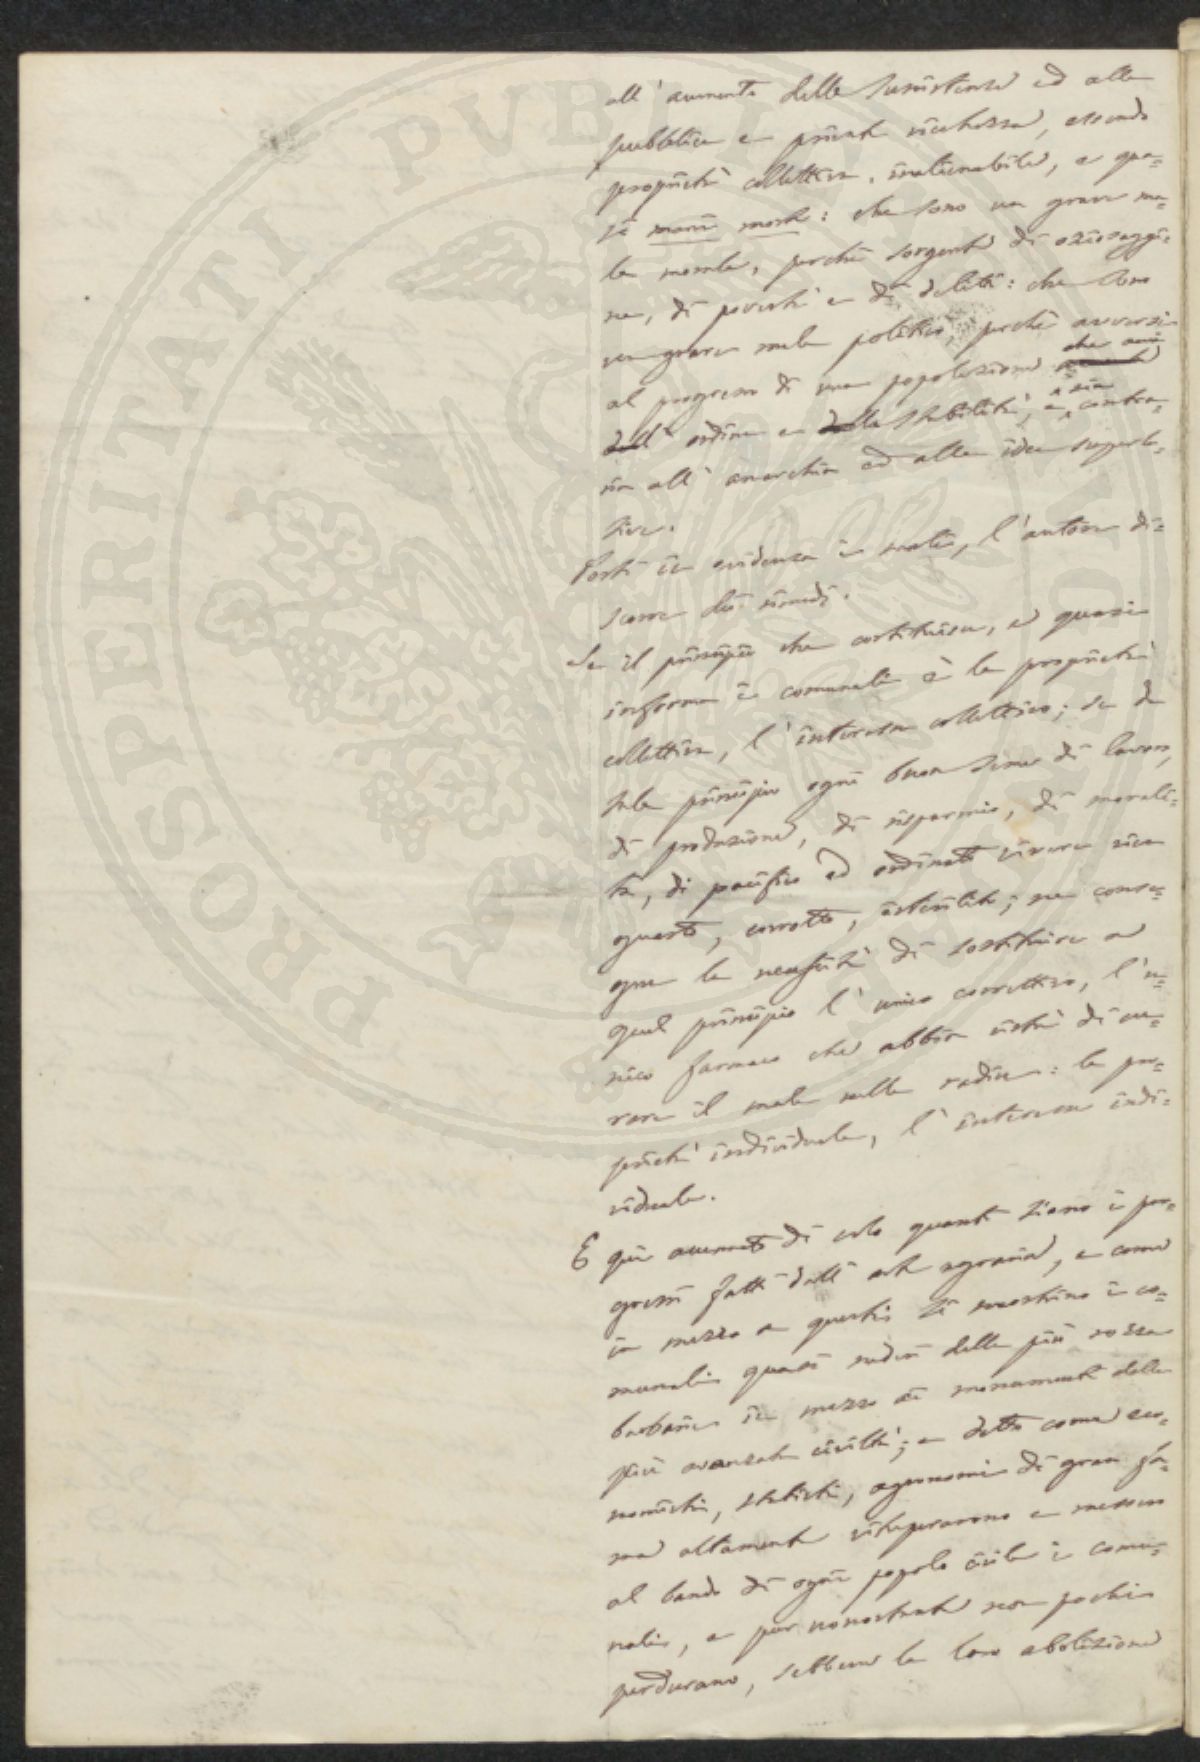 all'aumento delle sussistenze ed alla
pubblica e privata ricchezza, essendo
proprietà collettiva, inalienabile, e qua-
si mani morte: che sono un grave ma-
le morale, perchè sorgente di oziosaggi-
ne, di povertà e di delitti: che sono
un grave male politico, perchè avversi
al progresso di una popolazione che ami
dell'ordine e della stabilità, e sia contra-
ria all'anarchia ed alle idee sovverti-
tive.
Posti in evidenza i mali, l'autore di-
scorre dei rimedi.
Se il principio che costituisce, e quasi
informa i comunali è la proprietà
collettiva, l'interesse collettivo; se da
tale principio ogni buon seme di lavoro,
di produzione, di risparmio, di morali-
tà, di pacifico ed ordinato vivere vien
guasto, corrotto, isterilito; ne conse-
gue la necessità di sostituire a
quel principio l'unico correttivo, l'u-
nico farmaco che abbia virtù di cu-
rare il male nella radice: la pro-
prietà individuale, l'interesse indi-
viduale.
E qui accennato di volo quanti siano i pro-
gressi fatti dall'arte agraria, e come
in mezzo a questi si mostrino i co-
munali quasi ruderi della più rozza
barbarie in mezzo ai monumenti della
più avanzata civiltà; e detto come eco-
nomisti, statisti, agronomi di gran fa-
ma altamente vituperarono e messero
al bando di ogni popolo civile i comu-
nali, e pur nonostante non pochi
perdurano, sebbene la loro abolizione
PROSPERITATI PVBLICAE